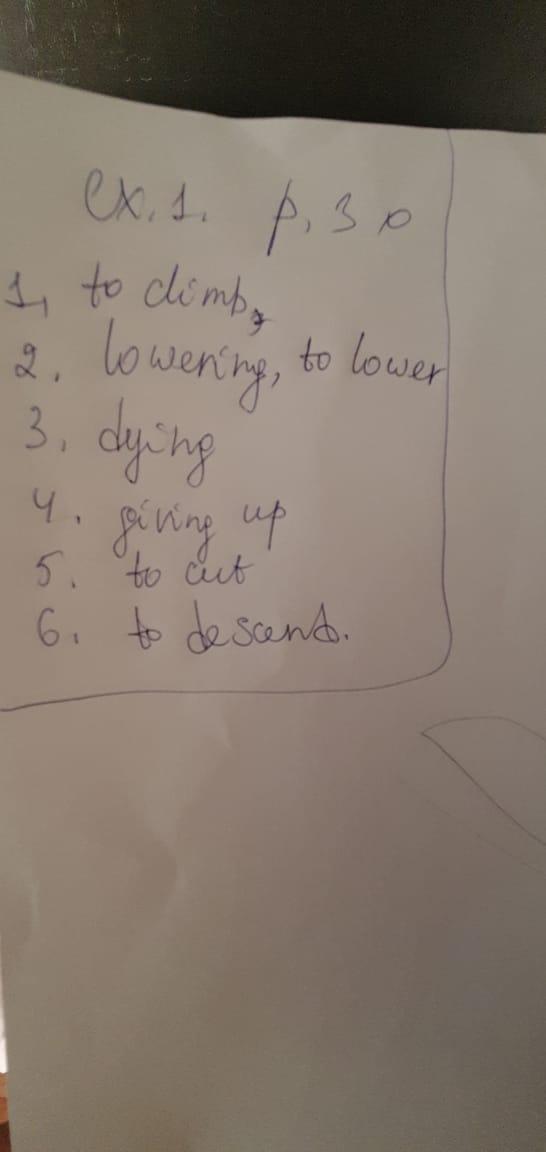 ex. 1. p. 30
1, to climb,
2. lowering, to lower
3. dying
4. giving up
5. to cut
6. to descend.